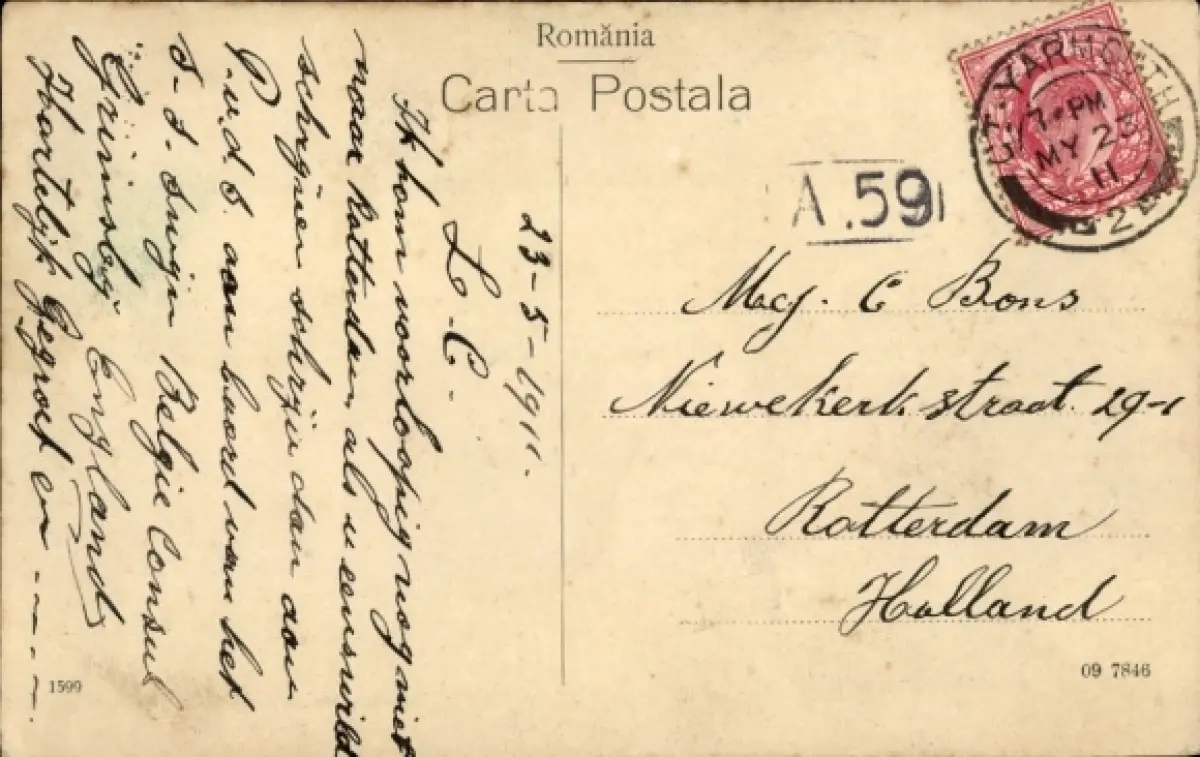 România
Carta Postala
GT. YARMOUTH
7.0 PM
MY 23
11
A.59
23-5-1911.
L. C.
Ik kom voorloopig nog niet
naar Rotterdam als u eens wild
schrijven schrijv dan aan
P. v.d. S. aan boord van het
S.S. Belgie Consul
Grimsby England
Hartelijk Gegroet en -----
Mej. C Bons
Niewekerk straat. 29-1
Rotterdam
Holland
1599
09 7846